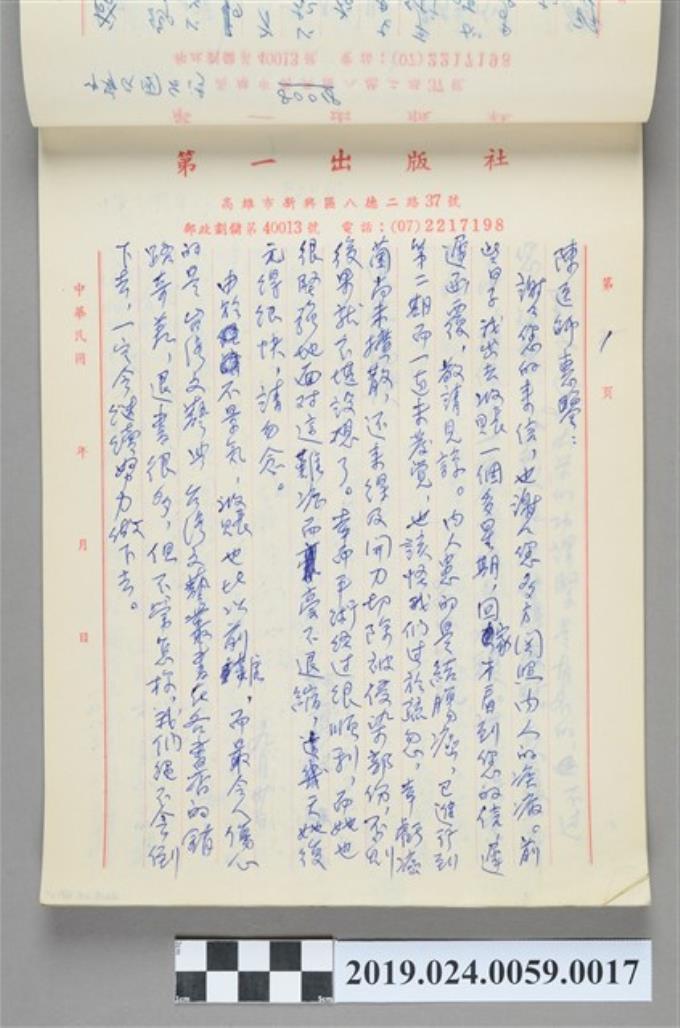 第一出版社
高雄市新興區八德二路37號
郵政劃儲第40013號 電話：(07)2217198
第 1 頁
陳醫師惠鑒：
謝々您的來信，也謝々您多方關照內人的疾病。前
些日子我出去收賬一個多星期，回家才看到您的信，遲
遲函覆，敬請見諒。內人患的是結腸癌，已進行到
第二期而一直未發覺，也該怪我們過於疏忽，幸虧癌
菌尚未擴散，還來得及開刀切除被侵染部份，否則
後果就不堪設想了。幸而手術經過很順利，而她也
很堅強地面對這難病而毫不退縮，這幾天她復
元得很快，請勿念。
由於不景氣，收賬也比以前難，而最令人傷心
的是台灣文藝與台灣文藝叢書在各書店的銷
路奇差，退書很多，但不管怎樣，我們絕不會倒
下去，一定会繼續努力做下去。
中華民國 年 月 日
2019.024.0059.0017